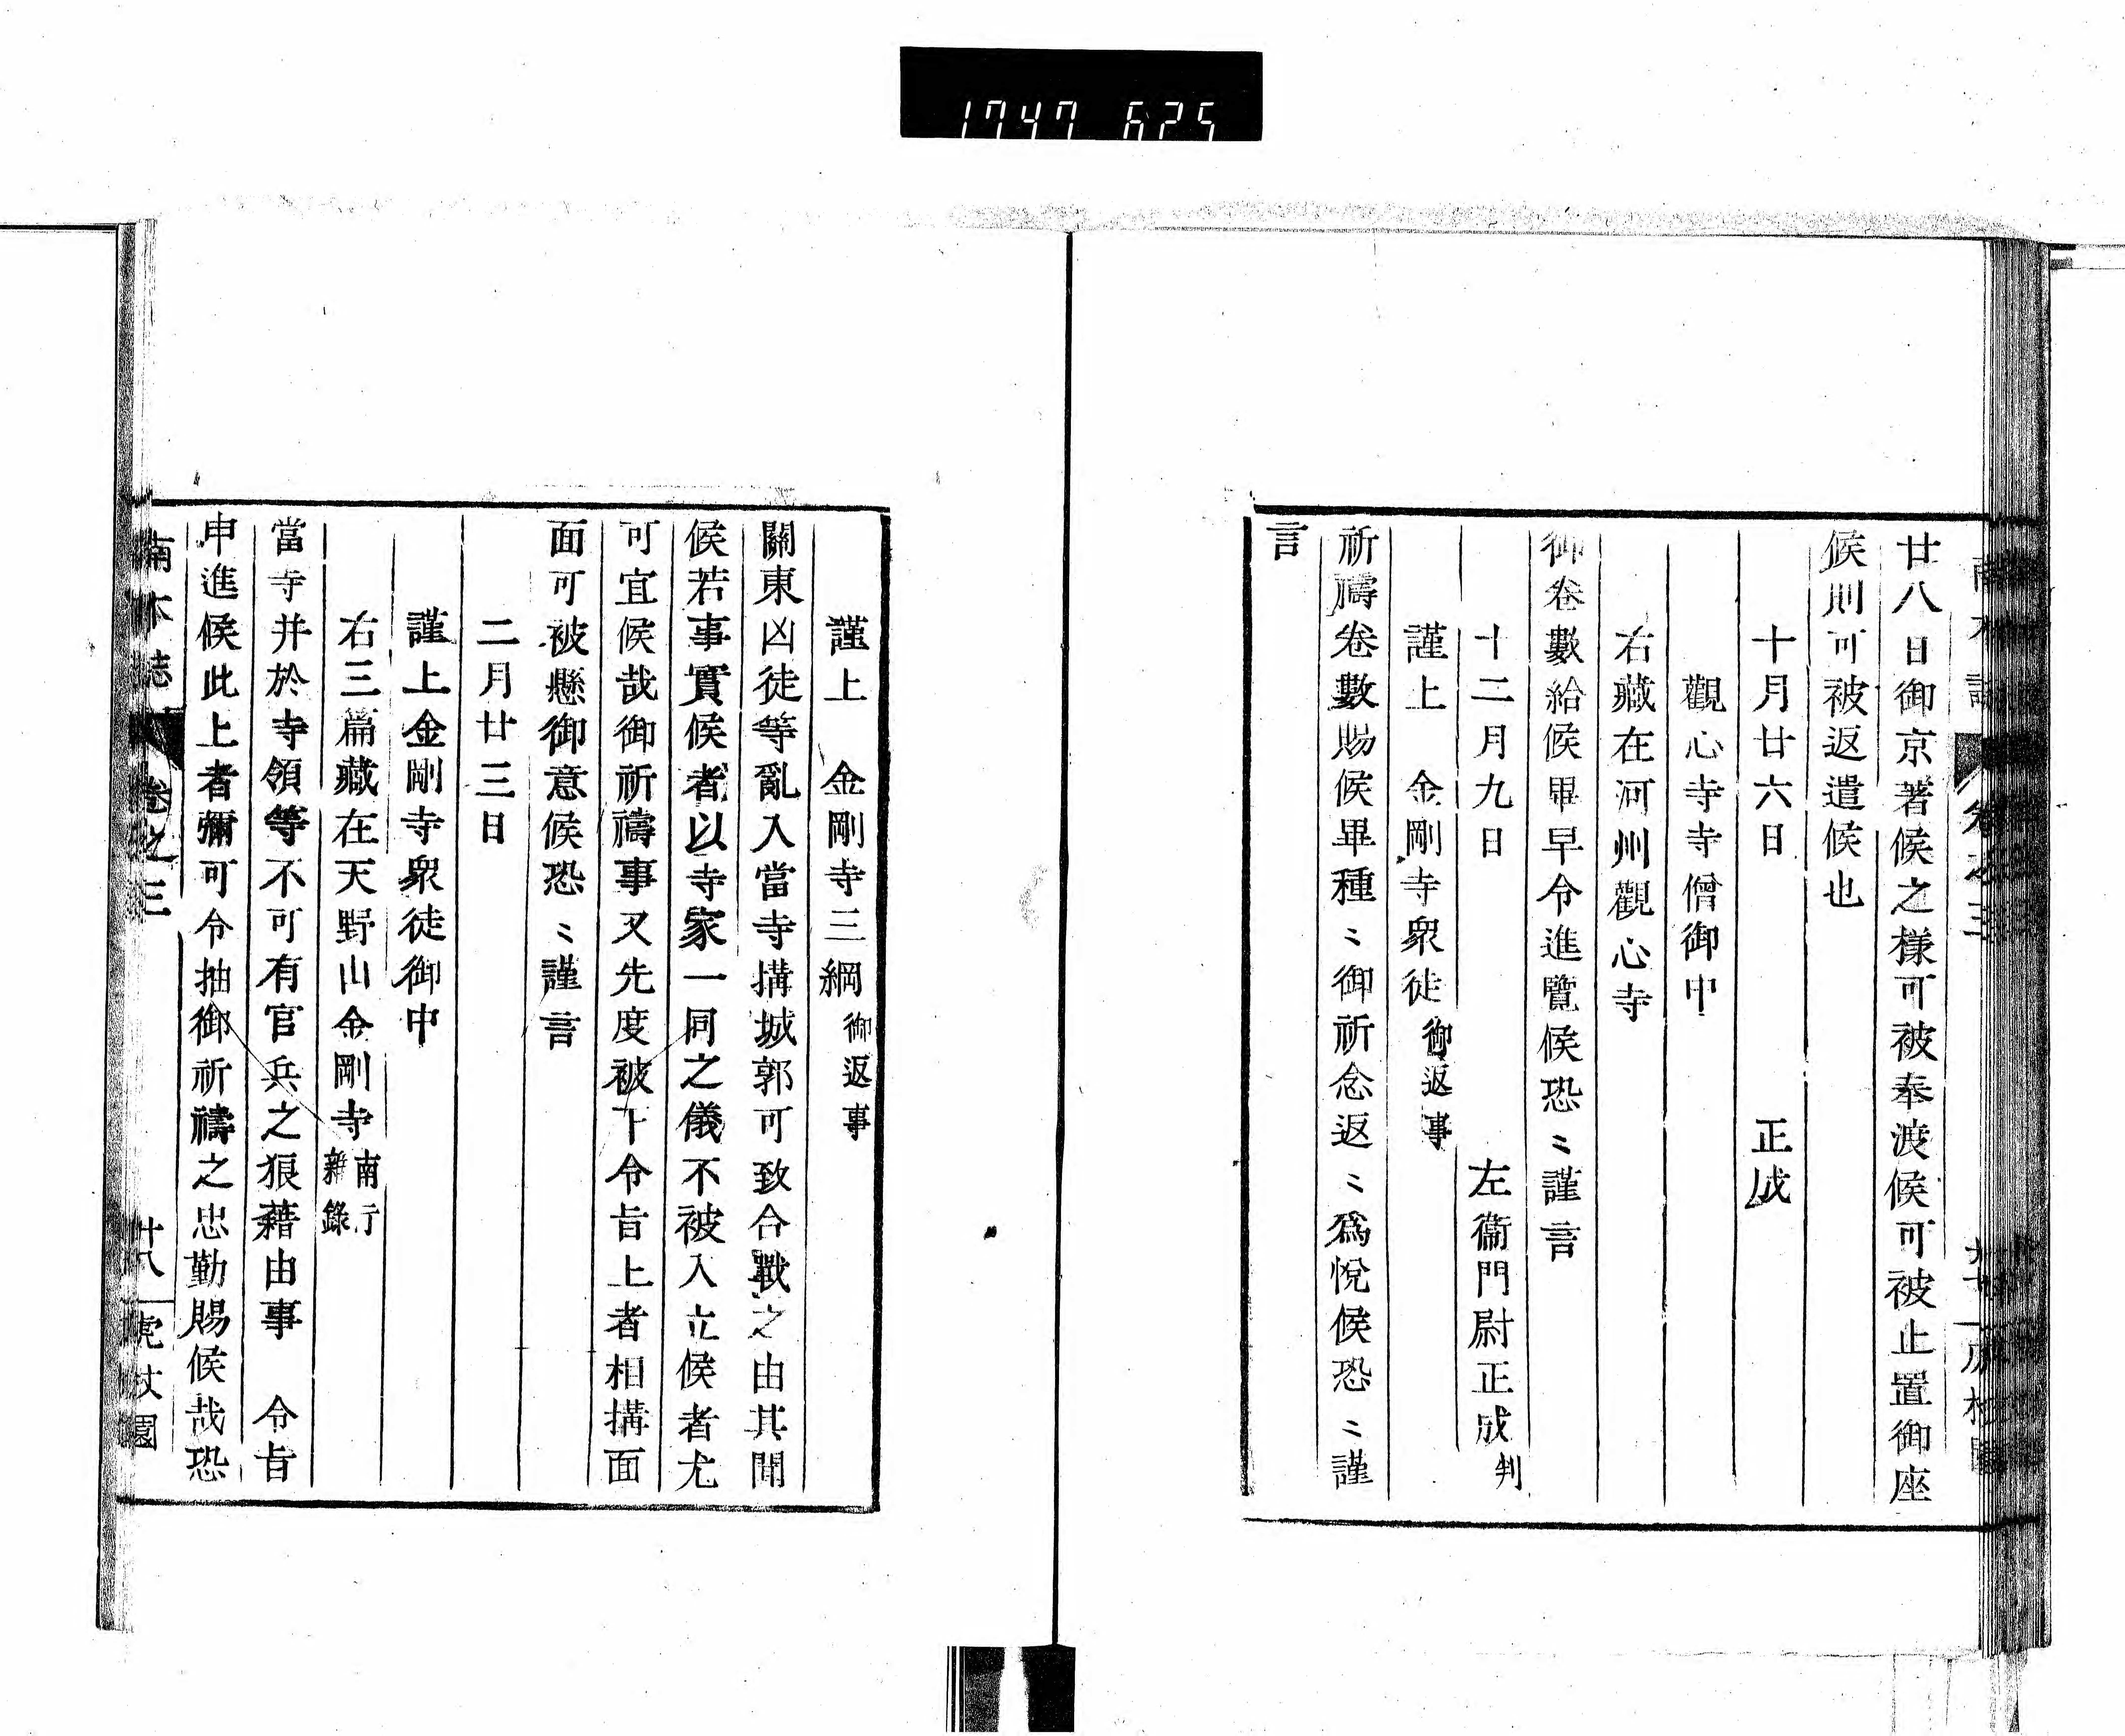 1747 625
廿八日御京著候之樣可被奉渡候可被止置御座
候則可被返遣候也
十月廿六日 正成
觀心寺寺僧御中
右藏在河州觀心寺
御卷數給候畢早令進覽候恐〻謹言
十二月九日 左衞門尉正成判
謹上 金剛寺衆徒御返事
祈禱卷數賜候畢種〻御祈念返〻爲悅候恐〻謹
言
謹上 金剛寺三綱御返事
關東凶徒等亂入當寺搆城郭可致合戰之由其聞
候若事實候者以寺家一同之儀不被入立候者尤
可宜候哉御祈禱事又先度被下令旨上者相搆面
面可被懸御意候恐〻謹言
二月廿三日
謹上金剛寺衆徒御中
右三篇藏在天野山金剛寺南行雜錄
當寺并於寺領等不可有官兵之狼藉由事 令旨
申進候此上者彌可令抽御祈禱之忠勤賜候哉恐
南木誌 卷之三 廿八 虎杖園